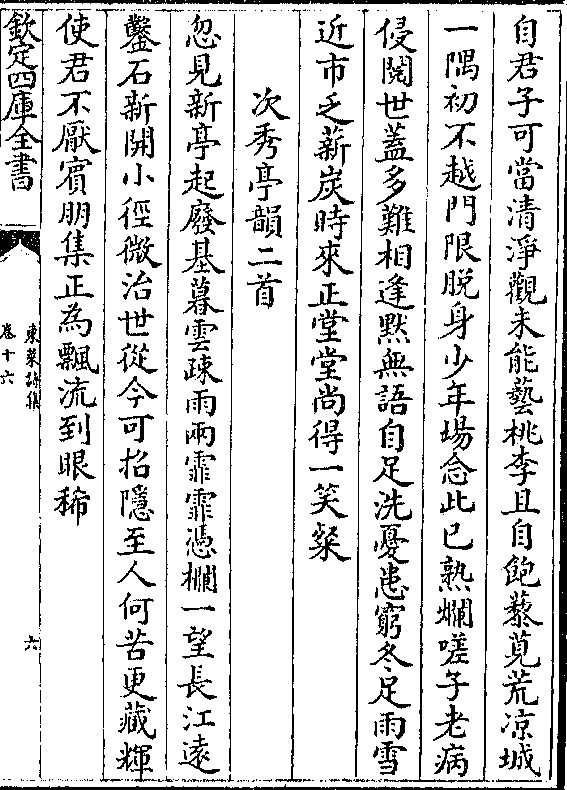 自君子可當清淨觀未能藝桃李且自飽藜莧荒凉城
一隅初不越門限脱身少年場念此已熟爛嗟予老病
侵閲世蓋多難相逢黙無語自足洗憂患窮冬足雨雪
近市乏薪炭時來正堂堂尚得一笑粲
次秀亭韻二首
忽見新亭起廢基暮雲疎雨兩霏霏憑欄一望長江逺
鑿石新開小徑微治世從今可招隱至人何苦更藏輝
使君不厭賓朋集正為飄流到眼稀
欽定四庫全書
東萊詩集
卷十六
六